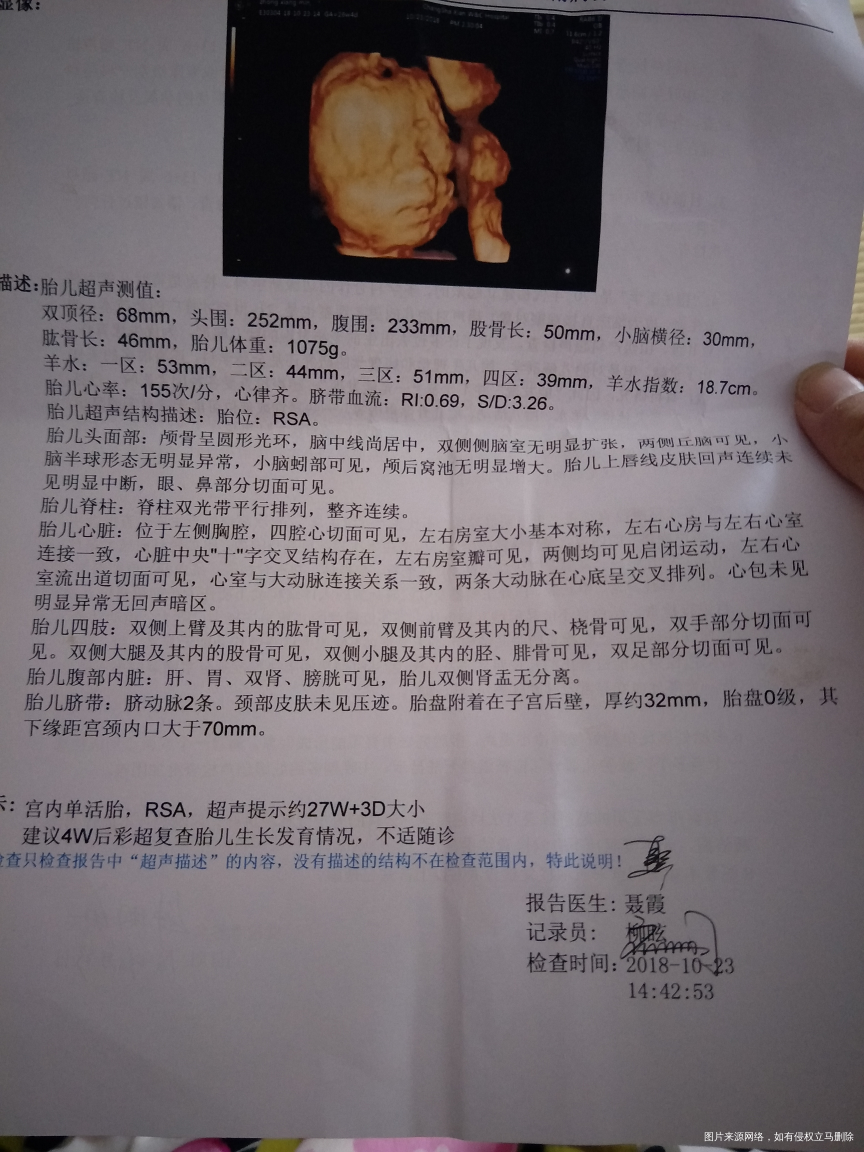 显像：
描述：胎儿超声测值：
双顶径：68mm，头围：252mm，腹围：233mm，股骨长：50mm，小脑横径：30mm，
肱骨长：46mm，胎儿体重：1075g。
羊水：一区：53mm，二区：44mm，三区：51mm，四区：39mm，羊水指数：18.7cm。
胎儿心率：155次/分，心律齐。脐带血流：RI:0.69，S/D:3.26。
胎儿超声结构描述：胎位：RSA。
胎儿头面部：颅骨呈圆形光环，脑中线尚居中，双侧侧脑室无明显扩张，两侧丘脑可见，小
脑半球形态无明显异常，小脑蚓部可见，颅后窝池无明显增大。胎儿上唇线皮肤回声连续未
见明显中断，眼、鼻部分切面可见。
胎儿脊柱：脊柱双光带平行排列，整齐连续。
胎儿心脏：位于左侧胸腔，四腔心切面可见，左右房室大小基本对称，左右心房与左右心室
连接一致，心脏中央"十"字交叉结构存在，左右房室瓣可见，两侧均可见启闭运动，左右心
室流出道切面可见，心室与大动脉连接关系一致，两条大动脉在心底呈交叉排列。心包未见
明显异常无回声暗区。
胎儿四肢：双侧上臂及其内的肱骨可见，双侧前臂及其内的尺、桡骨可见，双手部分切面可
见。双侧大腿及其内的股骨可见，双侧小腿及其内的胫、腓骨可见，双足部分切面可见。
胎儿腹部内脏：肝、胃、双肾、膀胱可见，胎儿双侧肾盂无分离。
胎儿脐带：脐动脉2条。颈部皮肤未见压迹。胎盘附着在子宫后壁，厚约32mm，胎盘0级，其
下缘距宫颈内口大于70mm。
示：宫内单活胎，RSA，超声提示约27W+3D大小
建议4W后彩超复查胎儿生长发育情况，不适随诊
检查只检查报告中“超声描述”的内容，没有描述的结构不在检查范围内，特此说明！
报告医生：聂霞
记录员：
检查时间：2018-10-23
14:42:53
图片来源网络，如有侵权立马删除